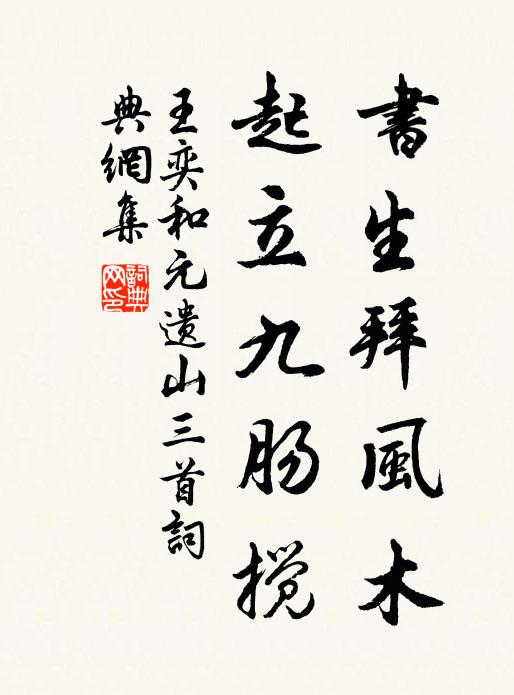 書生拜風木
起立九肠搅
王奕和元遺山三首詞
典網集
詞典網印